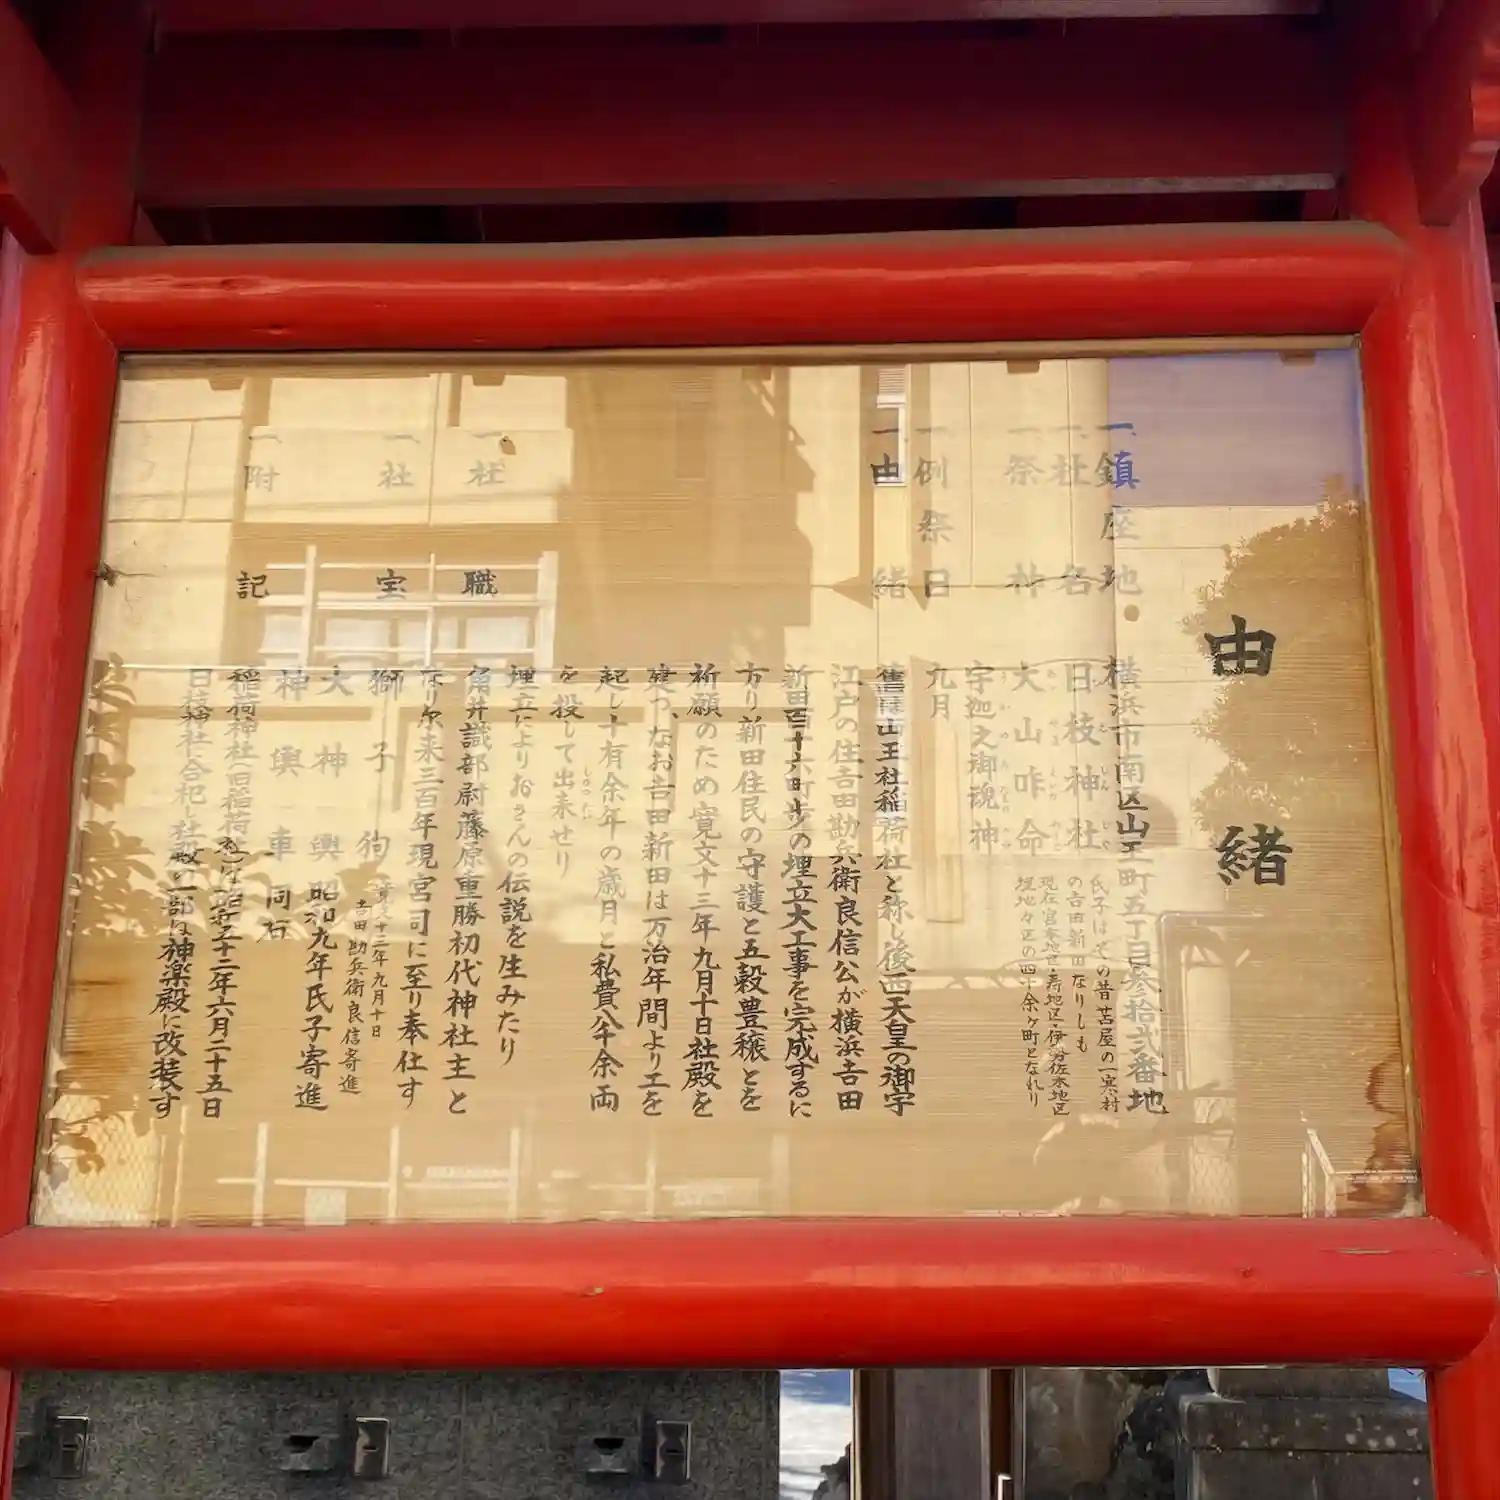 由緒
一、鎮座地 横浜市南区山王町五丁目参拾弐番地
一、社名 日枝神社 氏子はその昔苫屋の一寒村
の吉田新田なりしも
現在官本地区・寿地区・伊勢佐木地区
埋地々区の四十余ヶ町となれり
一、祭神 大山咋命
宇迦之御魂神
一、例祭日 九月
一、由緒 舊は山王社稲荷社と称し後西天皇の御宇
江戸の住吉田勘兵衛良信公が横浜吉田
新田百十六町歩の埋立大工事を完成するに
方り新田住民の守護と五穀豊穣とを
祈願のため寛文十三年九月十日社殿を
建つ、なお吉田新田は万治年間より工を
起し十有余年の歳月と私費八千余両
を投して出来せり
埋立によりおさんの伝説を生みたり
一、社職 角井識部尉藤原重勝初代神社主と
なり尓来三百年現宮司に至り奉仕す
一、社宝 獅子狗 寛文十三年九月十日
吉田勘兵衛良信寄進
大神輿 昭和九年氏子寄進
神輿車 同右
一、附記 稲荷神社旧稲荷社は昭和三十二年六月二十五日
日枝神社に合祀し社殿の一部は神楽殿に改装す